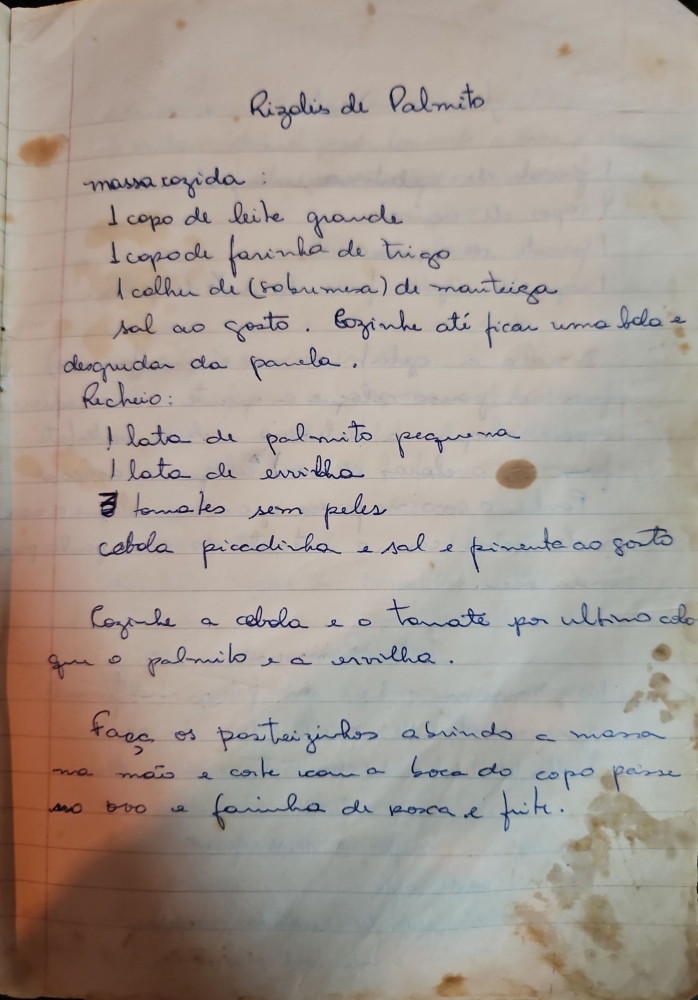 Rizolis de Palmito
massa cozida :
1 copo de leite grande
1 copo de farinha de trigo
1 colher de (sobremesa) de manteiga
sal ao gosto . Cozinhe até ficar uma bola e
desgrudar da panela .
Recheio :
1 lata de palmito pequena
1 lata de ervilha
3 tomates sem peles
cebola picadinha e sal e pimenta ao gosto
Cozinhe a cebola e o tomate por ultimo colo
que o palmito e a ervilha .
Faça os pasteizinhos abrindo a massa
na mão e corte com a boca do copo passe
no ovo e farinha de rosca e frite .